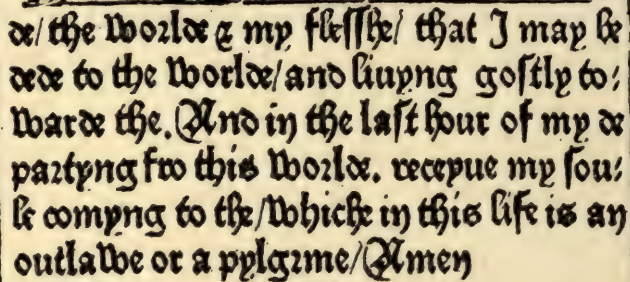 de/ the Worlde & my flesshe/ that I may be
dede to the worlde/and liuyng gostly to:
warde the. And in the last hour of my de
partyng fro this worlde. receyue my sou:
le comyng to the/whiche in this life is an
outlawe or a pylgrime/Amen